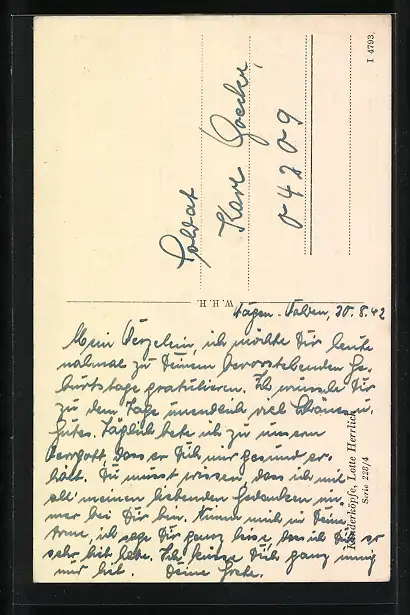 Soldat
Karl
04209
I 4793
W. H. H.
Hagen - , 30.8.42
Mein Herzelein, ich möchte Dir heute
nochmal zu Deinem bevorstehenden Ge-
burtstage gratulieren. Ich wünsche Dir
zu dem Tage unendlich viel u.
Gutes. Täglich bete ich zu unserm
Herrgott, dass er Dich mir gesund er-
hält. Du musst wissen, dass ich mit
all meinen liebenden Gedanken im-
mer bei Dir bin. Nimm mich in Deine
Arme, ich sage Dir ganz leise, dass ich Dich so
sehr lieb habe. Ich küsse Dich ganz innig
Deine Grete.
Kinderköpfe, Lotte Herrlich
Serie 220/4